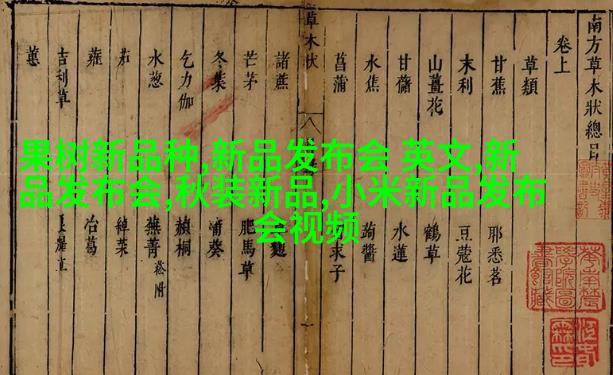 南方草木狀總目
卷上
草類
甘蕉 耶悉茗
末利 豆蔻花
山薑花 鶴草
甘藷 水蓮
水蕉 蒟醬
菖蒲 末子
草木狀 八
諸蔗
芒茅 肥馬草
冬葉 蒲葵
乞力伽 赬桐
水葱 蕪菁 菘附
茄 綽菜
蕹 冶葛
吉利草
蕙
果树新品种,新品发布会 英文,新
品发布会,秋装新品,小米新品发布
会视频